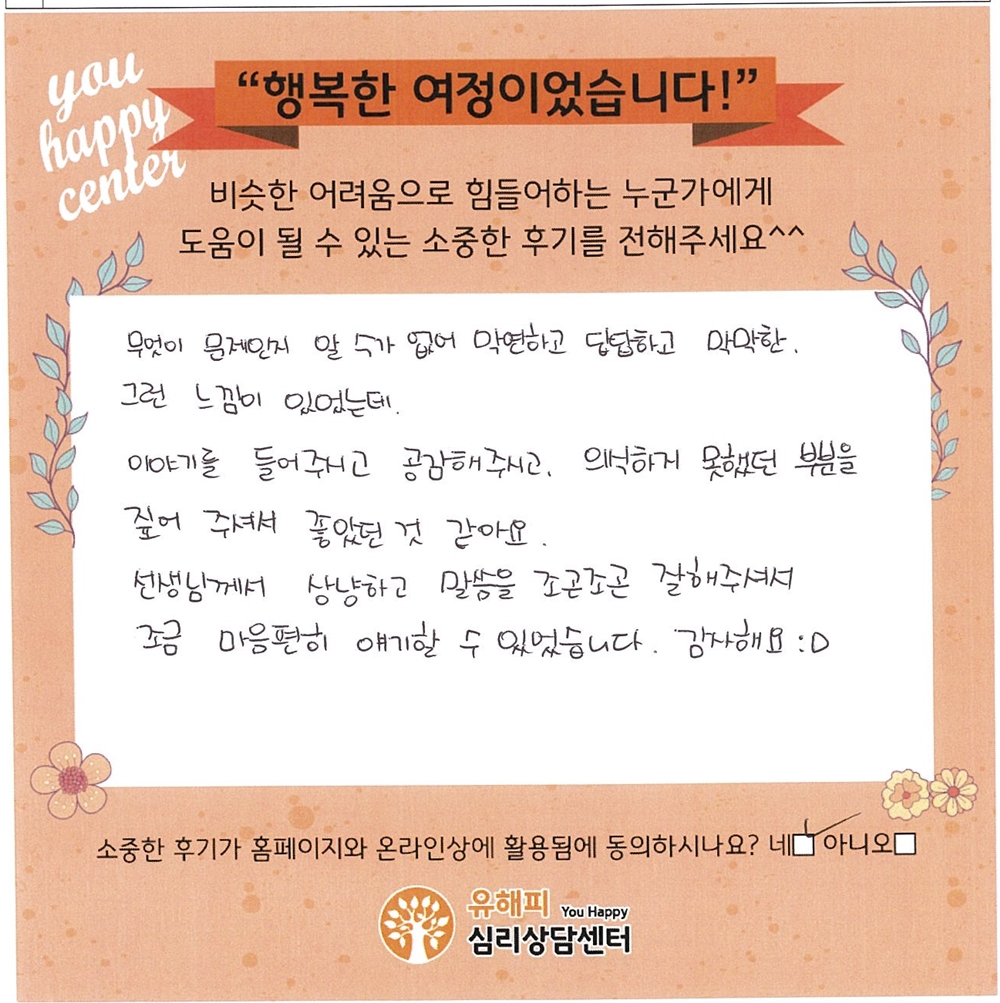 you
happy
center
“행복한 여정이었습니다!”
비슷한 어려움으로 힘들어하는 누군가에게
도움이 될 수 있는 소중한 후기를 전해주세요^^
무엇이 문제인지 알 수가 없어 막연하고 답답하고 막막한.
그런 느낌이 있었는데.
이야기를 들어주시고 공감해주시고, 의식하지 못했던 부분을
짚어 주셔서 좋았던 것 같아요.
선생님께서 상냥하고 말씀을 조곤조곤 잘해주셔서
조금 마음편히 얘기할 수 있었습니다. 감사해요 :D
소중한 후기가 홈페이지와 온라인상에 활용됨에 동의하시나요? 네☑ 아니오□
유해피 You Happy
심리상담센터